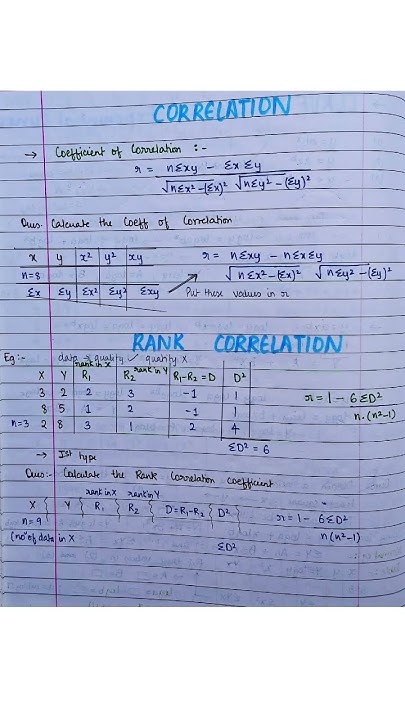 CORRELATION
→ Coefficient of Correlation :-
r = nΣxy - Σx Σy
√nΣx²-(Σx)² √nΣy²-(Σy)²
Ques. Calculate the Coeff of Correlation
x y x² y² xy
n=8
Σx Σy Σx² Σy² Σxy
r = nΣxy - nΣxΣy
√nΣx²-(Σx)² √nΣy²-(Σy)²
Put these values in r
RANK CORRELATION
Eg:- data → quality ✓ quantity X
rank in x rank in Y
X Y R₁ R₂ R₁-R₂=D D²
3 2 2 3 -1 1
8 5 1 2 -1 1
n=3 2 8 3 1 2 4
ΣD² = 6
r = 1 - 6ΣD²
n.(n²-1)
→ Ist type
Ques:- Calculate the Rank Correlation coefficient
rank in X rank in Y
X Y R₁ R₂ D=R₁-R₂ D²
n=9
(no. of data in X
ΣD²
r = 1 - 6ΣD²
n(n²-1)